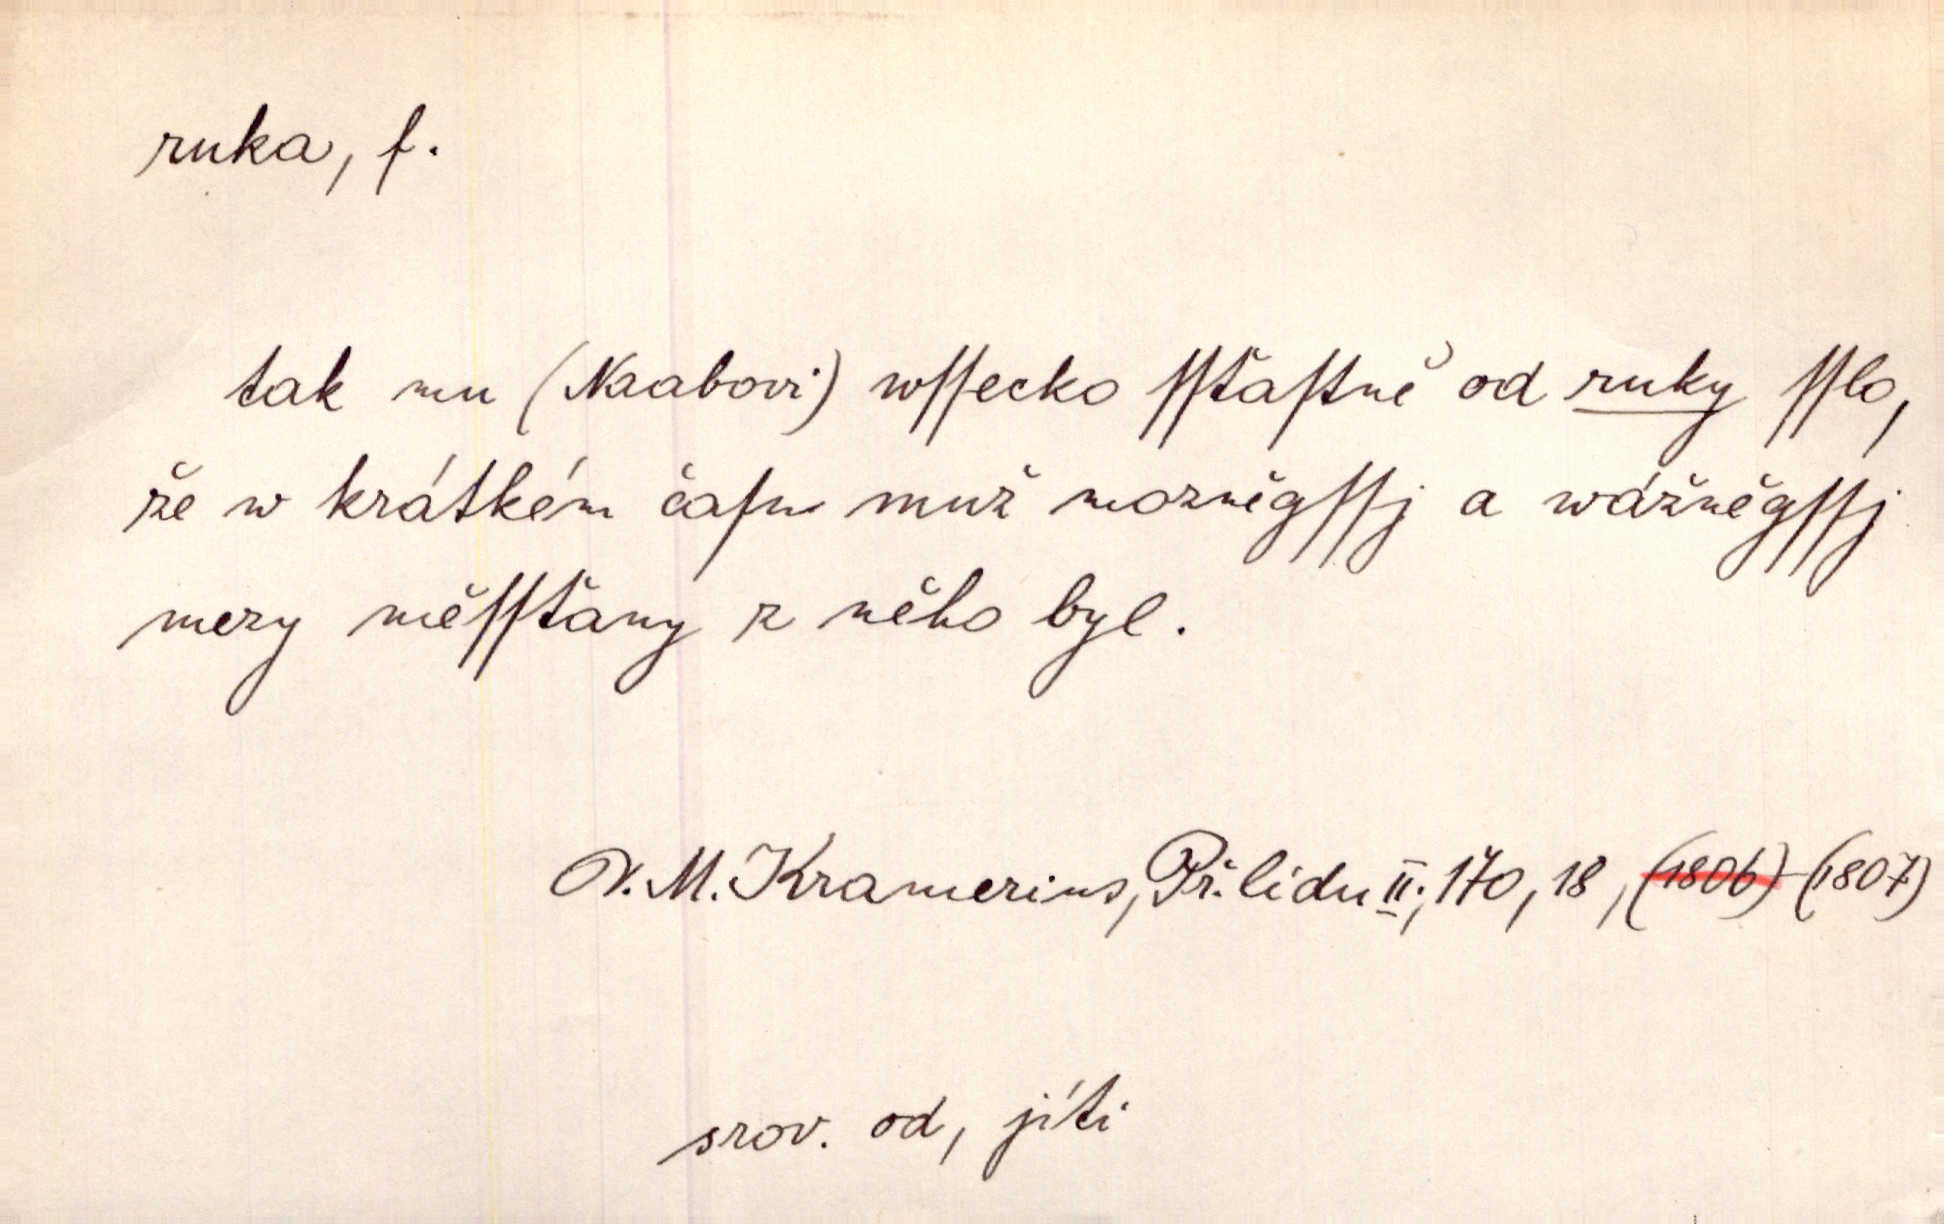 ruka, f.
tak mu (Naabovi) wſſecko ſſťaſtně od ruky ſſlo,
že w krátkém čaſu muž mozněgſſj a wážněgſſj
mezy měſſťany z něho byl.
V. M. Kramerius, Př. lidu II., 170, 18, (1806) (1807)
srov. od, jíti